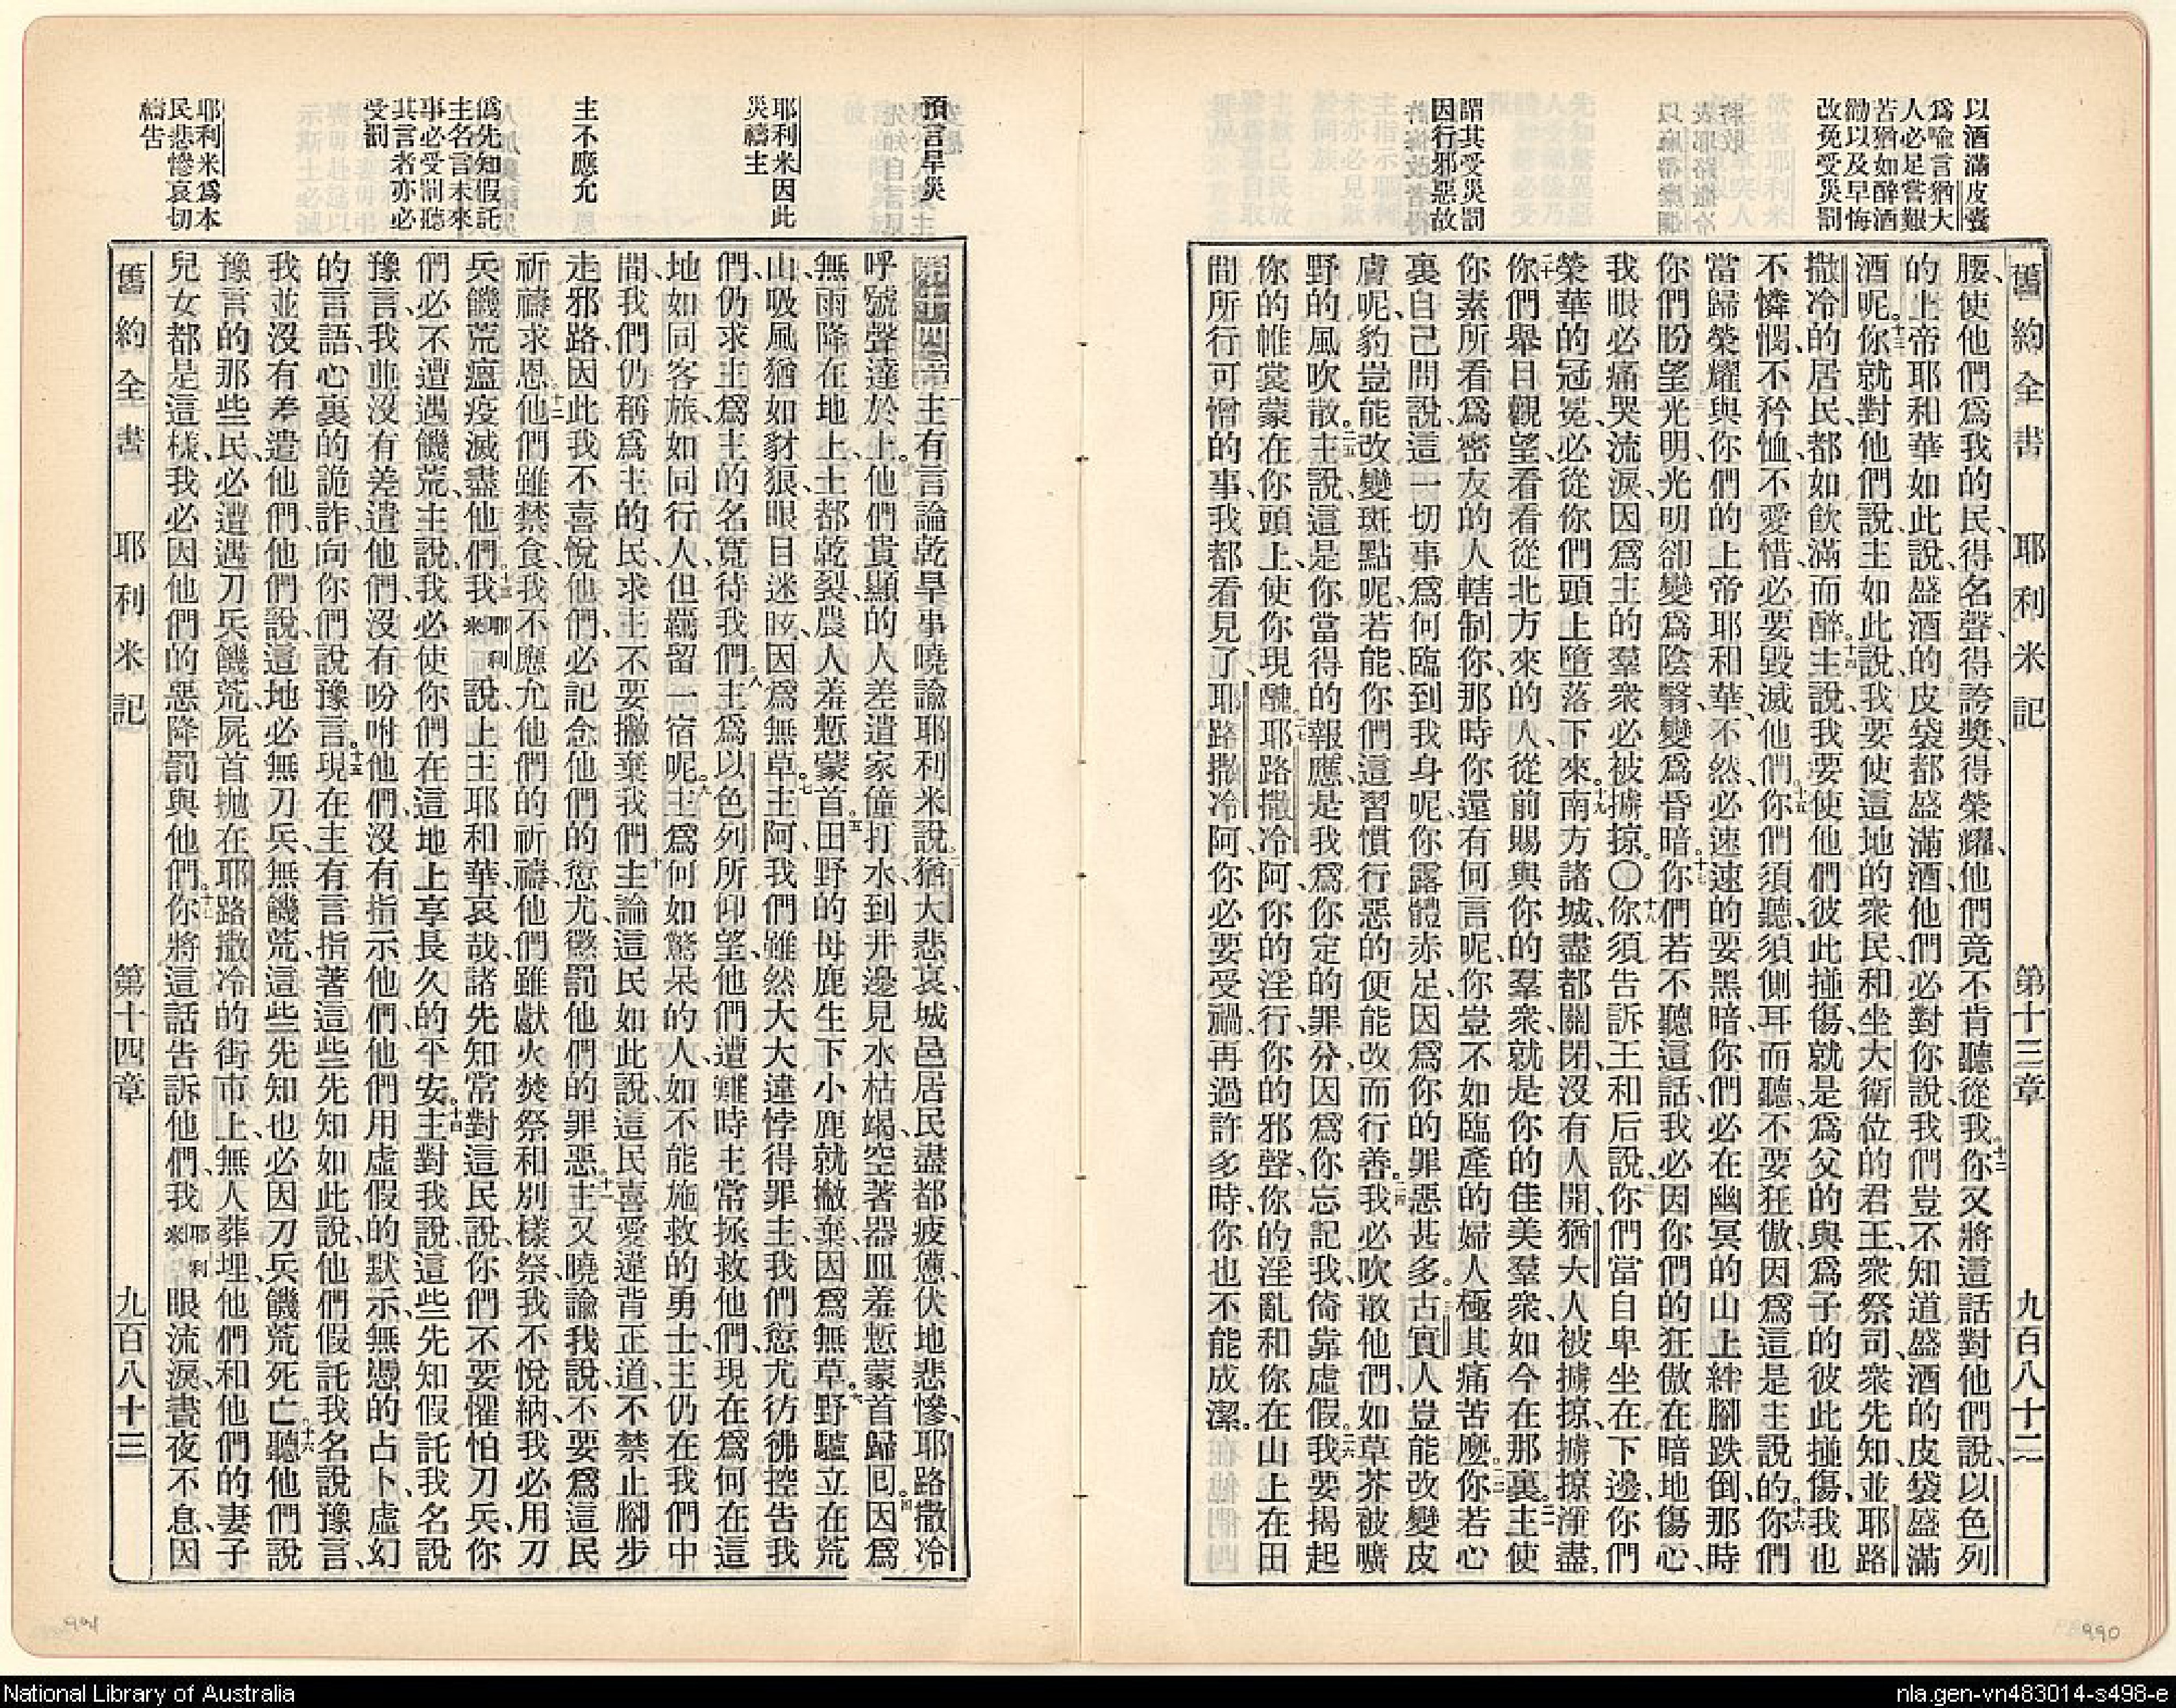 以酒滿皮囊
爲喩言猶大
人必足嘗艱
苦猶如醉酒
勸以及早悔
改免受災罰
謂其受災罰
因行邪惡故
舊約全書 耶利米記 第十三章 九百八十二
腰、使他們爲我的民、得名聲、得誇獎、得榮耀、他們竟不肯聽從我。十二你又將這話對他們說、以色列
的上帝耶和華如此說、盛酒的皮袋都盛滿酒、他們必對你說、我們豈不知道盛酒的皮袋盛滿
酒呢。十三你就對他們說、主如此說、我要使這地的衆民、和坐大衛位的君王、衆祭司、衆先知、並耶路
撒冷的居民、都如飮滿而醉。十四主說、我要使他們彼此撞傷、就是爲父的與爲子的彼此撞傷、我也
不憐憫、不矜恤、不愛惜、必要毀滅他們。十五你們須聽、須側耳而聽、不要狂傲、因爲這是主說的。十六你們
當歸榮耀與你們的上帝耶和華、不然、必速速的要黑暗、你們必在幽冥的山上絆腳跌倒、那時
你們盼望光明、光明卻變爲陰翳、變爲昏暗。十七你們若不聽這話、我必因你們的狂傲在暗地傷心、
我眼必痛哭流淚、因爲主的羣衆必被擄掠。〇十八你須告訴王和后說、你們當自卑坐在下邊、你們
榮華的冠冕、必從你們頭上墮落下來。十九南方諸城、盡都關閉、沒有人開、猶大人被擄掠、擄掠淨盡。
二十你們舉目觀望、看看從北方來的人、從前賜與你的羣衆、就是你的佳美羣衆、如今在那裏。二一主使
你素所看爲密友的人轄制你、那時你還有何言呢、你豈不如臨產的婦人極其痛苦麼。二二你若心
裏自己問說、這一切事爲何臨到我身呢、你露體赤足、因爲你的罪惡甚多。二三古實人豈能改變皮
膚呢、豹豈能改變斑點呢、若能、你們這習慣行惡的、便能改而行善。二四我必吹散他們、如草芥被曠
野的風吹散。二五主說、這是你當得的報應、是我爲你定的罪分、因爲你忘記我、倚靠虛假。二六我要揭起
你的帷裳、蒙在你頭上、使你現醜。二七耶路撒冷阿、你的淫行、你的邪聲、你的淫亂、和你在山上在田
間所行可憎的事、我都看見了、耶路撒冷阿、你必要受禍、再過許多時、你也不能成潔。
預言旱災
耶利米因此
災禱主
主不應允
僞先知假託
主名言未來
事必受罰聽
其言者亦必
受罰
耶利米爲本
民悲慘哀切
禱告
第十四章 一主有言論乾旱事曉諭耶利米說、二猶大悲哀、城邑居民盡都疲憊、伏地悲慘、耶路撒冷
呼號聲達於上。三他們貴顯的人差遣家僮打水、到井邊見水枯竭、空著器皿羞慙蒙首歸回。四因爲
無雨降在地上、土都乾裂、農人羞慙蒙首。五田野的母鹿生下小鹿就撇棄、因爲無草。六野驢立在荒
山、吸風猶如豺狼、眼目迷眩、因爲無草。七主阿、我們雖然大大違悖得罪主、我們愆尤彷彿控告我
們、仍求主爲主的名寬待我們。八主爲以色列所仰望、他們遭難時、主常拯救他們、現在爲何在這
地如同客旅、如同行人、但羈留一宿呢。九主爲何如驚呆的人、如不能施救的勇士、主仍在我們中
間、我們仍稱爲主的民、求主不要撇棄我們。十主論這民如此說、這民喜愛違背正道、不禁止腳步
走邪路、因此我不喜悅他們、必記念他們的愆尤、懲罰他們的罪惡。十一主又曉諭我說、不要爲這民
祈禱求恩。十二他們雖禁食、我不應允他們的祈禱、他們雖獻火焚祭和別樣祭、我不悅納、我必用刀
兵饑荒瘟疫滅盡他們。十三我耶利米說、上主耶和華、哀哉、諸先知常對這民說、你們不要懼怕刀兵、你
們必不遭遇饑荒、主說、我必使你們在這地上享長久的平安。十四主對我說、這些先知假託我名說
豫言、我並沒有差遣他們、沒有吩咐他們、沒有指示他們、他們用虛假的默示、無憑的占卜、虛幻
的言語、心裏的詭詐、向你們說豫言。十五現在主有言指著這些先知如此說、他們假託我名說豫言、
我並沒有差遣他們、他們說、這地必無刀兵、無饑荒、這些先知也必因刀兵饑荒死亡。十六聽他們說
豫言的那些民、必遭遇刀兵饑荒、屍首拋在耶路撒冷的街市上、無人葬埋、他們和他們的妻子
兒女都是這樣、我必因他們的惡降罰與他們。十七你將這話告訴他們、我耶利米眼流淚、晝夜不息、因
舊約全書 耶利米記 第十四章 九百八十三
991
990
National Library of Australia
nla.gen-vn483014-s498-e